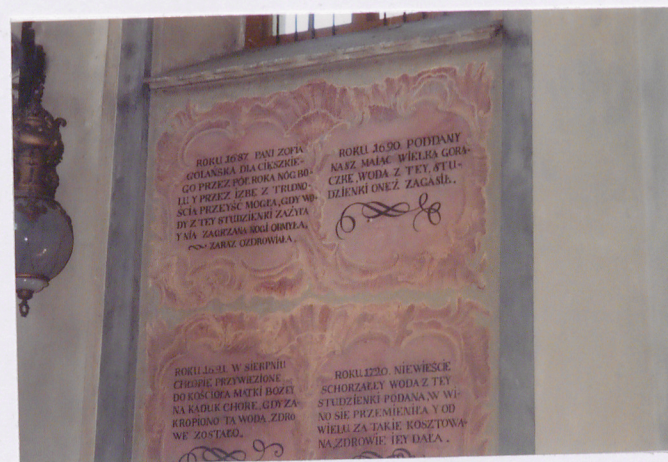 ROKU 1687. PANI ZOFIA
GOLAŃSKA DLA CIĘSZKIE-
GO PRZEZ PÓŁ ROKA NÓG BO-
LU Y PRZEZ IZBĘ Z TRUDNO-
ŚCIĄ PRZEYŚĆ MOGŁA, GDY WO-
DY Z TEY STUDZIENKI ZAŻYŁA
Y NIĄ ZAGRZANĄ NOGI OBMYŁA,
ZARAZ OZDROWIAŁA.
ROKU .1690. PODDANY
NASZ MAIĄC WIELKĄ GORĄ-
CZKĘ, WODĄ Z TEY, STU-
DZIENKI ONEŻ ZAGASIŁ.
ROKU .1691. W SIERPNIU
CHŁOPIĘ PRZYWIEZIONE
DO KOŚCIOŁA MATKI BOZEY
NA KADUK CHORE, GDY ZA-
KROPIONO TĄ WODĄ ZDRO-
WE ZOSTAŁO.
ROKU 1220. NIEWIEŚCIE
SCHORZAŁEY WODA Z TEY
STUDZIENKI PODANA, W WI-
NO SIĘ PRZEMIENIŁA Y OD
WIELU ZA TAKIE KOSZTOWA-
NA, ZDROWIE IEY DAŁA.